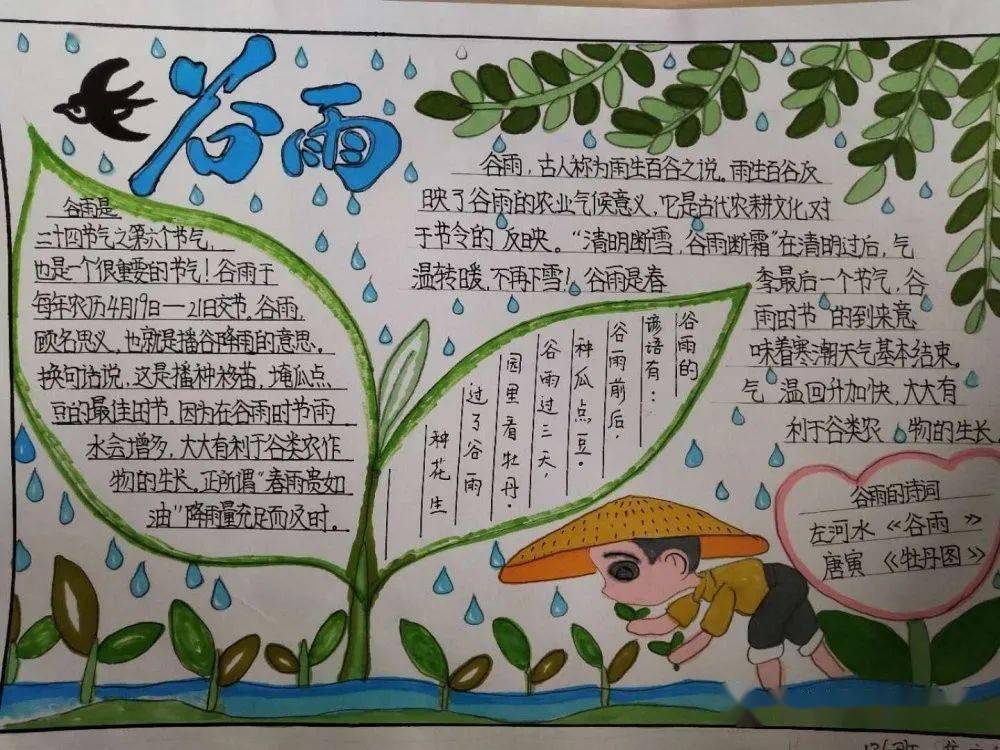 谷雨
谷雨是
二十四节气之第六个节气,
也是一个很重要的节气!谷雨于
每年农历4月19日—21日交节。谷雨,
顾名思义,也就是播谷降雨的意思。
换句话说,这是播种移苗,埯瓜点
豆的最佳时节。因为在谷雨时节雨
水会增多,大大有利于谷类农作
物的生长。正所谓"春雨贵如
油"降雨量充足而及时。
谷雨,古人称为雨生百谷之说。雨生百谷反
映了谷雨的农业气候意义,它是古代农耕文化对
于节令的 反映。"清明断雪,谷雨断霜"在清明过后,气
温转暖,不再下雪!谷雨是春
季最后一个节气,谷
雨时节 的到来意
味着寒潮天气基本结束。
气 温回升加快,大大有
利于谷类农 物的生长
谷雨的
谚语有:
谷雨前后,
种瓜点豆。
谷雨过三天,
园里看牡丹。
过了谷雨
种花生
谷雨的诗词
左河水《谷雨 》
唐寅 《牡丹图》